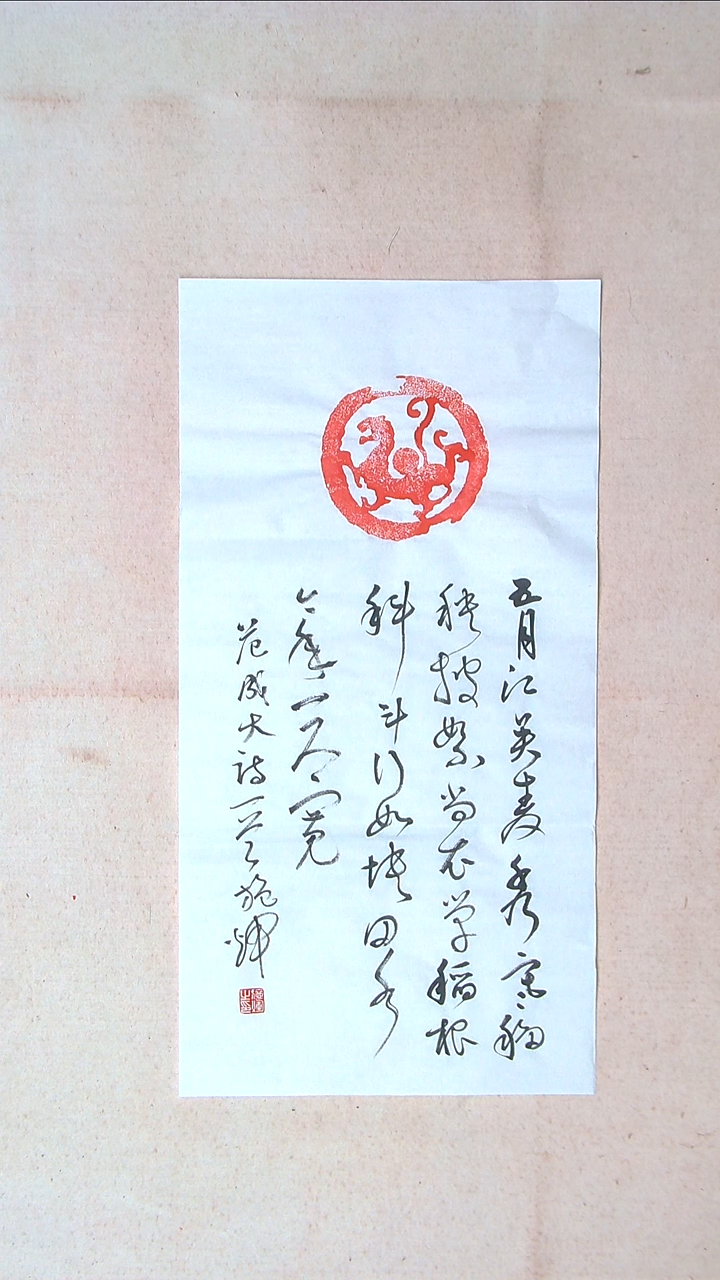 五月江吴麦秀寒移
秧披絮尚衣单稻根
科斗行如块田水
今年一尺宽
范成大诗一首